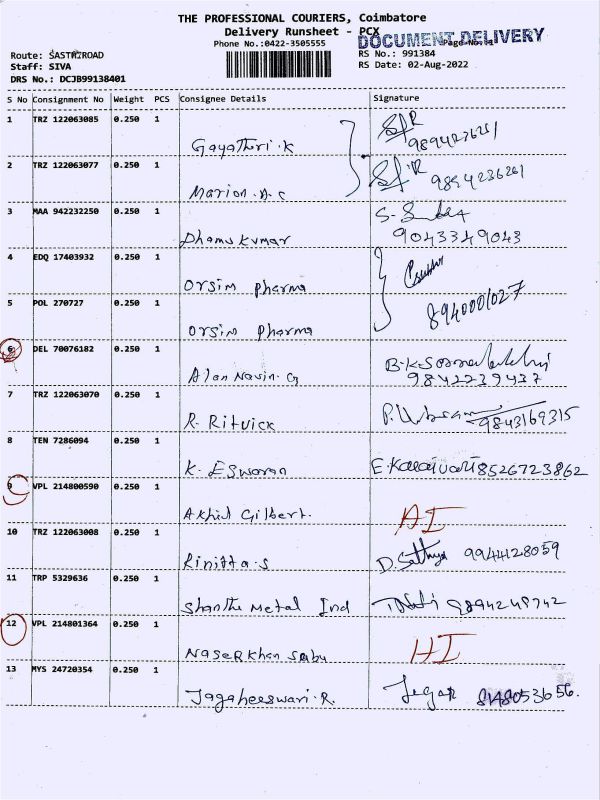 THE PROFESSIONAL COURIERS, Coimbatore
Delivery Runsheet - PCX
Phone No.:0422-3505555
DOCUMENT DELIVERY
Route: SASTRIROAD
RS No.: 991384
Staff: SIVA
RS Date: 02-Aug-2022
DRS No.: DCJB99138401
S No Consignment No Weight PCS Consignee Details Signature
1 TRZ 122063085 0.250 1 Gayathiri.K 9894236261
2 TRZ 122063077 0.250 1 Marion.A.C 9894236261
3 MAA 942232250 0.250 1 Dhamukumar 9043349043
4 EDQ 17403932 0.250 1 Orsim pharma
5 POL 270727 0.250 1 Orsim pharma 8940001027
6 DEL 70076182 0.250 1 Alan Navin.G 9842239437
7 TRZ 122063070 0.250 1 R. Ritvick 9843169315
8 TEN 7286094 0.250 1 K. Eswaran E. Kalaivani 8526723862
9 VPL 214800590 0.250 1 Akhil Gilbert. AI
10 TRZ 122063008 0.250 1 Rinitta.S D. Sathya 9944128059
11 TRP 5329636 0.250 1 Shanthi Metal Ind 9894249742
12 VPL 214801364 0.250 1 Naserkhan Sabu HI
13 MYS 24720354 0.250 1 Jagaheeswari.R.